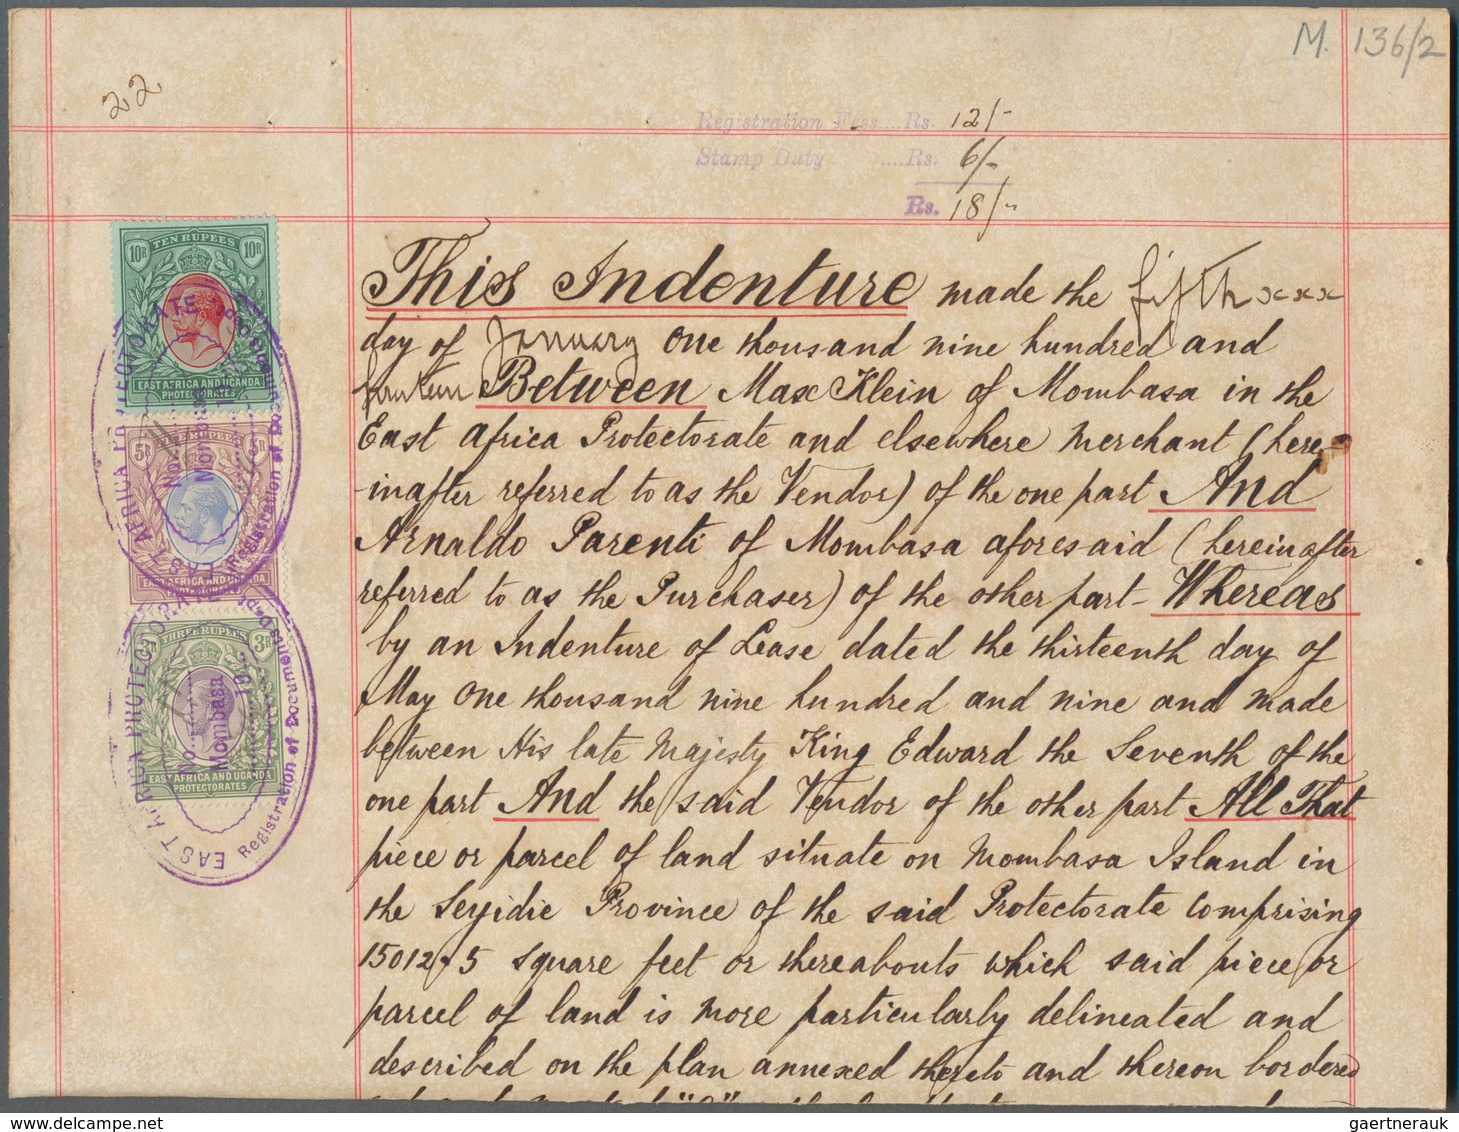 M. 136/2
22
Registration Fees....Rs. 12/-
Stamp Duty ....Rs. 6/-
Rs. 18/-
TEN RUPEES
10R 10R
EAST AFRICA AND UGANDA
PROTECTORATES
RUPEES
5R 5R
EAST AFRICA AND UGANDA
THREE RUPEES
3R
EAST AFRICA AND UGANDA
PROTECTORATES
EAST AFRICA PROTECTORATE
Registration of Documents
Mombasa
EAST AFRICA PROTECTORATE
Registration of Documents Dept.
No.
Mombasa
This Indenture made the fifth xxx
day of January One thousand nine hundred and
fourteen Between Max Klein of Mombasa in the
East Africa Protectorate and elsewhere Merchant (here
-inafter referred to as the Vendor) of the one part And
Arnaldo Parenti of Mombasa aforesaid (hereinafter
referred to as the Purchaser) of the other part - Whereas
by an Indenture of Lease dated the thirteenth day of
May One thousand nine hundred and nine and made
between His late Majesty King Edward the Seventh of the
one part And the said Vendor of the other part All That
piece or parcel of land situate on Mombasa Island in
the Seyidie Province of the said Protectorate comprising
15012.5 square feet or thereabouts which said piece or
parcel of land is more particularly delineated and
described on the plan annexed thereto and thereon bordered
gaertnerauk